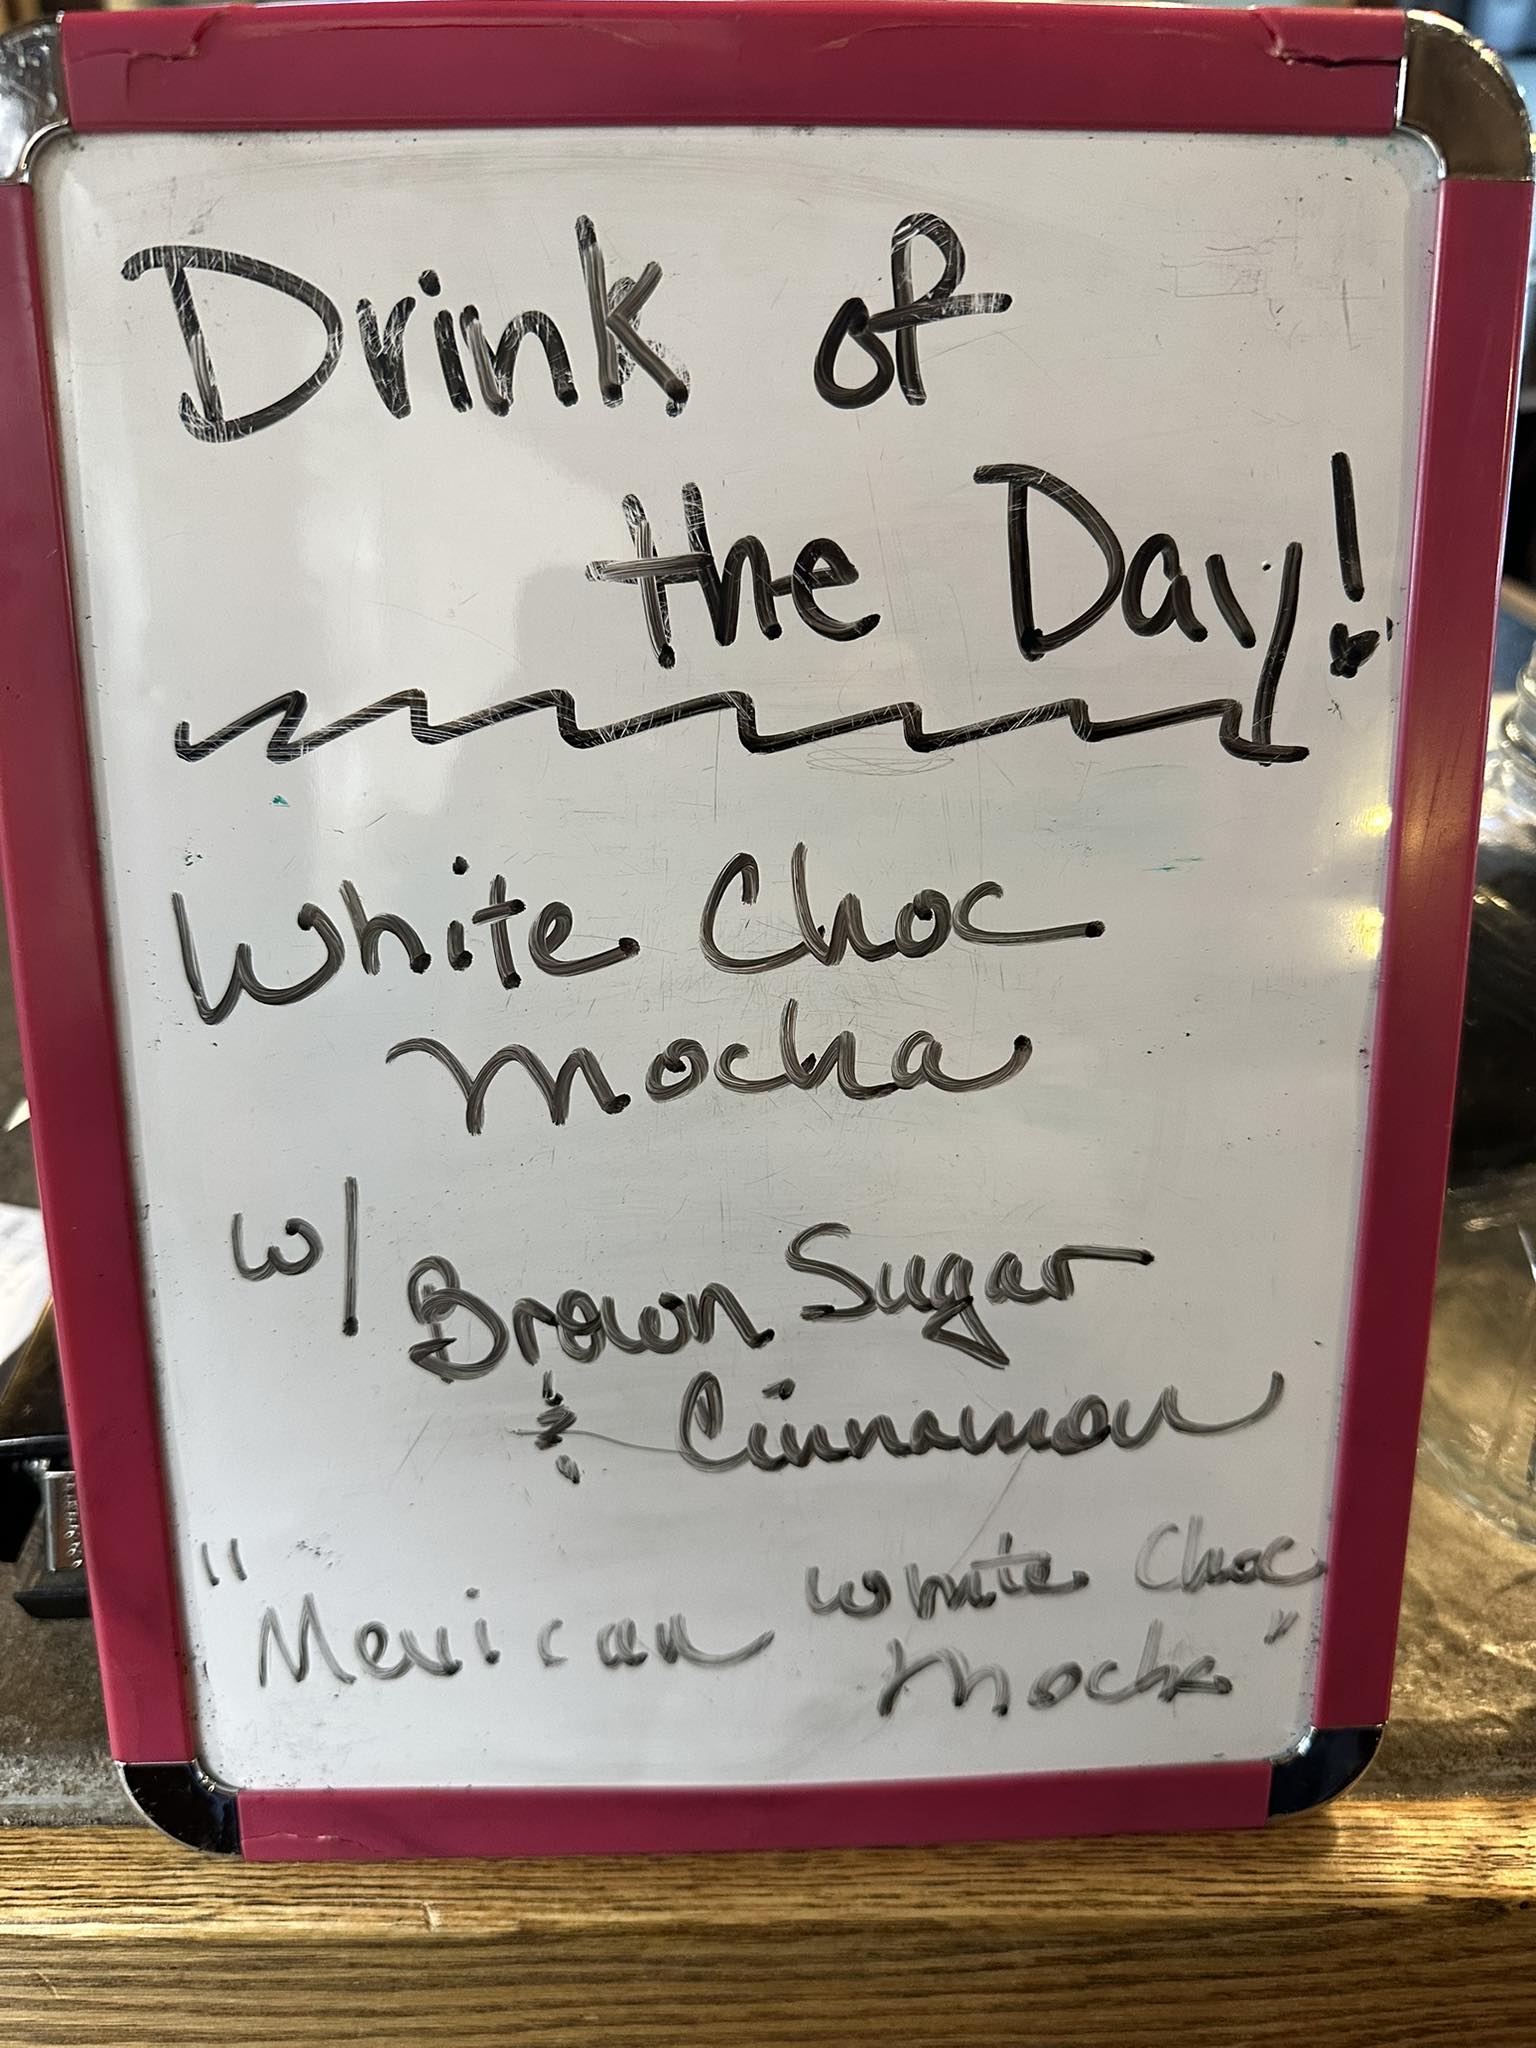 Drink of
the Day!
White Choc
Mocha
w/ Brown Sugar
& Cinnamon
"Mexican White Choc
Mocha"